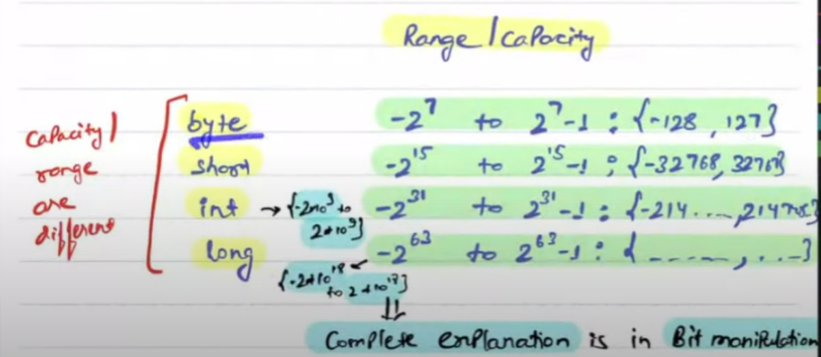 Range / Capacity
Capacity /
range
are
different
byte -2^7 to 2^7-1 : {-128, 127}
short -2^15 to 2^15-1 : {-32768, 32767}
int → {-2*10^9 to 2*10^9} -2^31 to 2^31-1 : {-214...., 214
long {-2*10^18 to 2*10^18} -2^63 to 2^63-1 : { ------, ...-}
Complete explanation is in Bit manipulation